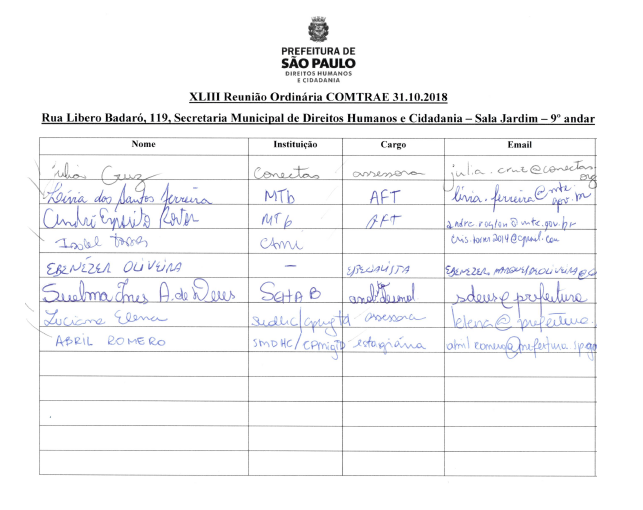 PREFEITURA DE
SÃO PAULO
DIREITOS HUMANOS
E CIDADANIA
XLIII Reunião Ordinária COMTRAE 31.10.2018
Rua Libero Badaró, 119, Secretaria Municipal de Direitos Humanos e Cidadania – Sala Jardim – 9º andar
Nome Instituição Cargo Email
Júlia Cruz Conectas assessora julia.cruz@conectas.org
Lívia dos Santos Ferreira MTb AFT livia.ferreira@mte.gov.br
André MTb AFT
Isabel Torres CAMI
EBENÉZER OLIVEIRA — ESPECIALISTA
Suelma Ines A. de Deus SEHAB sdeus@prefeitura
Luciana Elena assessora lelena@prefeitura.
ABRIL ROMERO SMDHC/CPMigTD estagiária